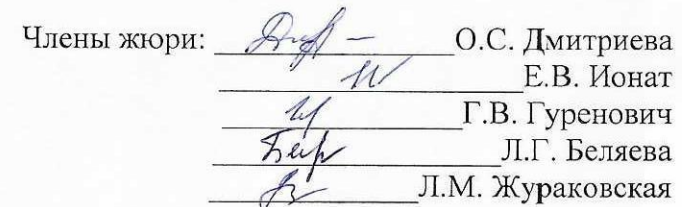 Члены жюри: О.С. Дмитриева
Е.В. Ионат
Г.В. Гуренович
Л.Г. Беляева
Л.М. Жураковская